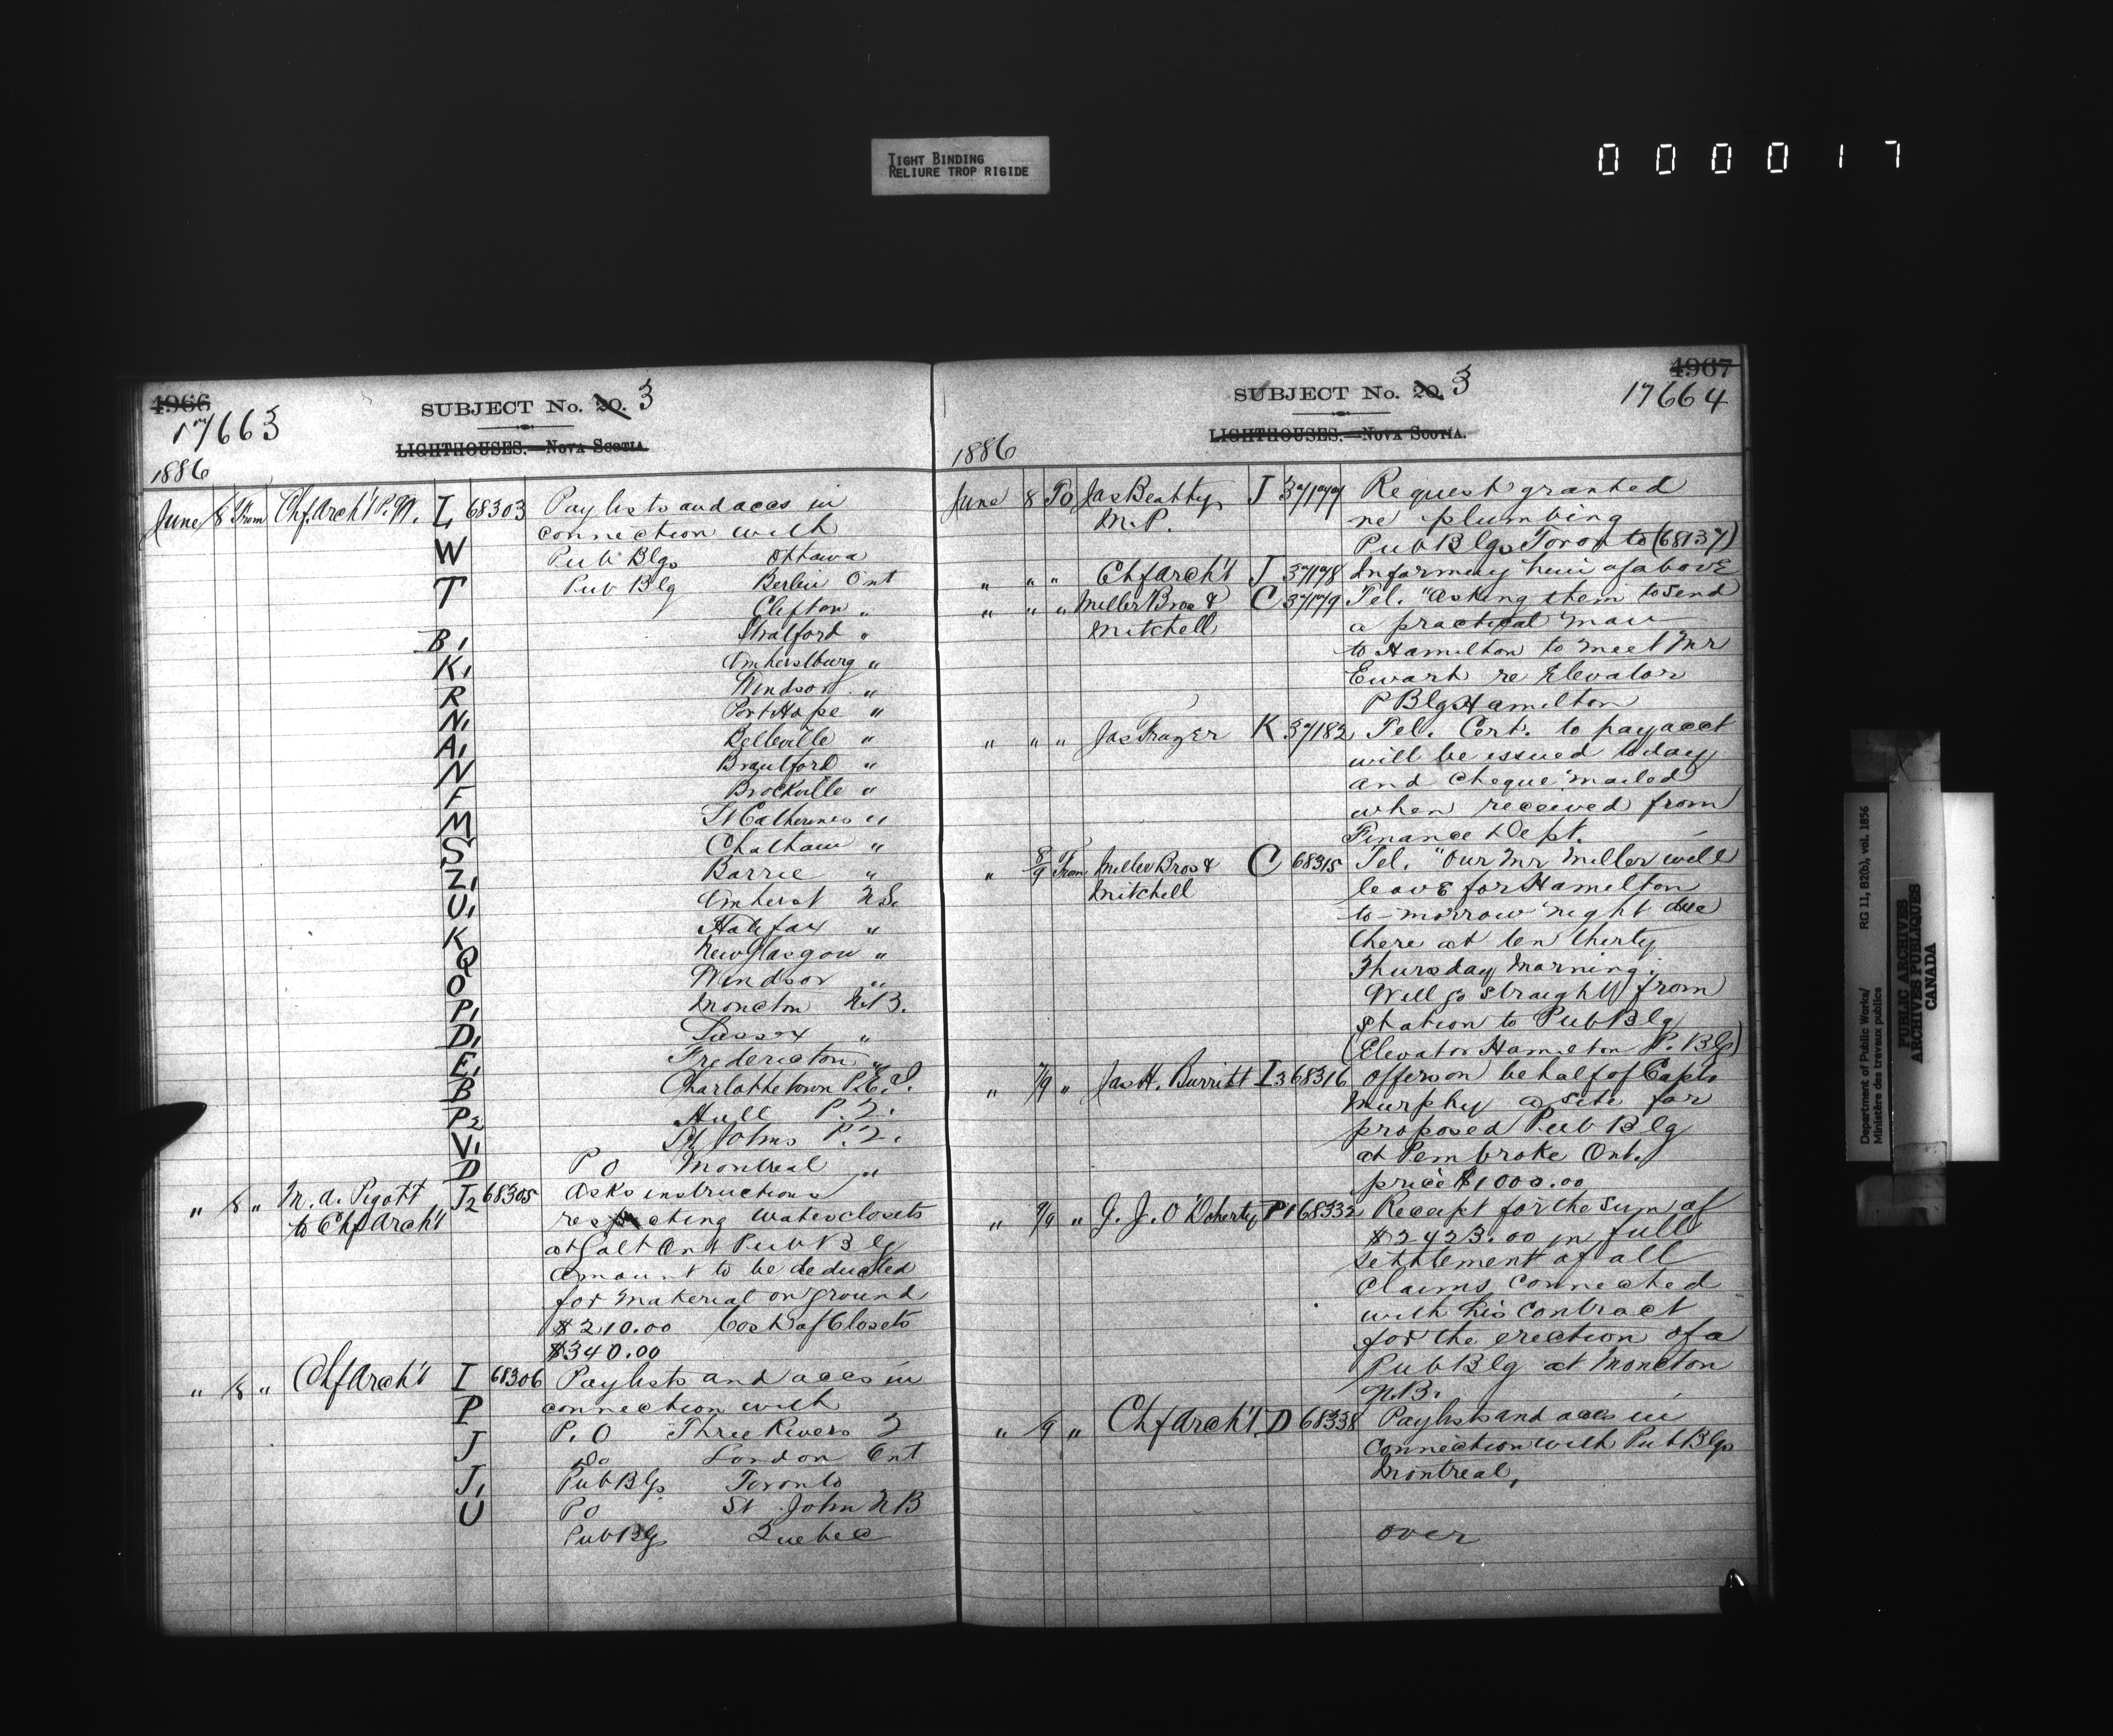 TIGHT BINDING
RELIURE TROP RIGIDE
0 0 0 0 1 7
4966
17663
SUBJECT No. 20. 3
LIGHTHOUSES.—NOVA SCOTIA.
1886
June 8 From Chf Arch't P.W. L 68303 Paylists and accs in
connection with
W Pub Blgs Ottawa
T Pub Blg Berlin Ont
Clifton "
B1 Stratford "
K1 Amherstburg "
R Windsor "
N1 Port Hope "
A1 Belleville "
N Brantford "
F Brockville "
M St Catherines "
S Chatham "
Z1 Barrie "
U1 Amherst N.S.
K Halifax "
Q New Glasgow "
O Windsor "
P1 Moncton N.B.
D1 Sussex "
E1 Fredericton "
B Charlottetown P.E.I.
P2 Hull P.Q.
V1 St Johns P.Q.
D P O Montreal "
" 8 " M. A. Pigott J2 68305 Asks instructions
to Chf Arch't respecting waterclosets
at Galt Ont Pub Blg
amount to be deducted
for material on ground
$210.00 Cost of Closets
$340.00
" 8 " Chf Arch't I 68306 Paylists and accs in
P connection with
J P. O Three Rivers Q
Do London Ont
J1 Pub Blgs Toronto
U P O St John N B
Pub Blgs Quebec
4967
SUBJECT No. 20. 3
17664
LIGHTHOUSES.—NOVA SCOTIA.
1886
June 8 To Jas Beatty J 37177 Request granted
M.P. re plumbing
Pub Blgs Toronto (68137)
" " " Chf Arch't J 37178 Informing him of above
" " " Miller Bros & C 37179 Tel. "Asking them to send
Mitchell a practical man
to Hamilton to meet Mr
Ewart re Elevator
P Blgs Hamilton
" " " Jas K 37182 Tel. Cert. to pay acct
will be issued today
and cheque mailed
when received from
Finance Dept.
" 8/9 From Miller Bros & C 68315 Tel. "Our Mr Miller will
Mitchell leave for Hamilton
to-morrow night due
there at ten thirty
Thursday Morning.
Will go straight from
Station to Pub Blg
(Elevator Hamilton P. Blg)
" 7/9 " Jas H. Burritt I3 68316 Offers on behalf of Capt.
Murphy a site for
proposed Pub Blg
at Pembroke Ont.
price $1000.00
" 9/9 " J. J. O'Doherty P1 68332 Receipt for the sum of
$2423.00 in full
settlement of all
claims connected
with his contract
for the erection of a
Pub Blg at Moncton
N.B.
" /9 " Chf Arch't D 68338 Paylists and accs in
connection with Pub Blgs
Montreal,
over
Department of Public Works/
Ministère des travaux publics
RG 11, B2(b), vol. 1856
PUBLIC ARCHIVES
ARCHIVES PUBLIQUES
CANADA